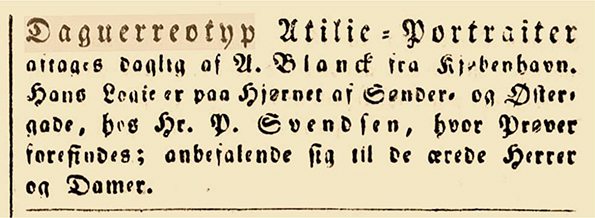 Daguerreotyp Atilie-Portraiter
aftages daglig af A. Blanck fra Kjøbenhavn.
Hans Logie er paa Hjørnet af Sønder- og Øster-
gade, hos Hr. P. Svendsen, hvor Prøver
forefindes; anbefalende sig til de ærede Herrer
og Damer.